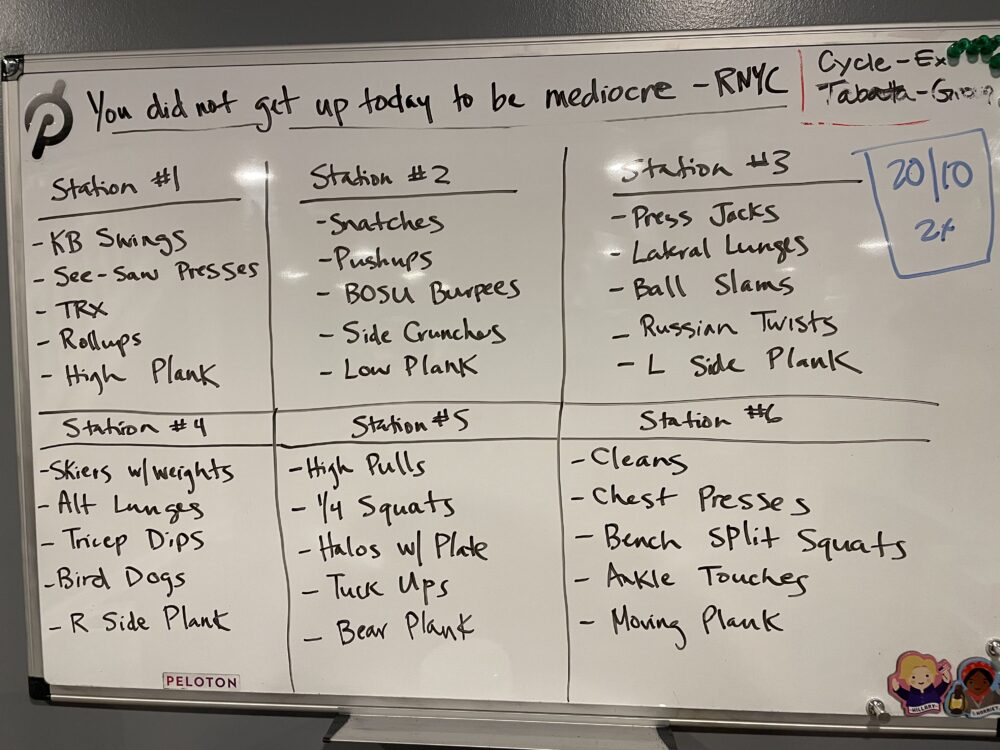 You did not get up today to be mediocre - RNYC
Cycle - Ex
Tabata -
20/10
2x
Station #1
- KB Swings
- See-Saw Presses
- TRX
- Rollups
- High Plank
Station #2
- Snatches
- Pushups
- BOSU Burpees
- Side Crunches
- Low Plank
Station #3
- Press Jacks
- Lateral Lunges
- Ball Slams
- Russian Twists
- L Side Plank
Station #4
- Skiers w/weights
- Alt Lunges
- Tricep Dips
- Bird Dogs
- R Side Plank
Station #5
- High Pulls
- 1/4 Squats
- Halos w/ Plate
- Tuck Ups
- Bear Plank
Station #6
- Cleans
- Chest Presses
- Bench Split Squats
- Ankle Touches
- Moving Plank
PELOTON
HILLARY
HARRIET